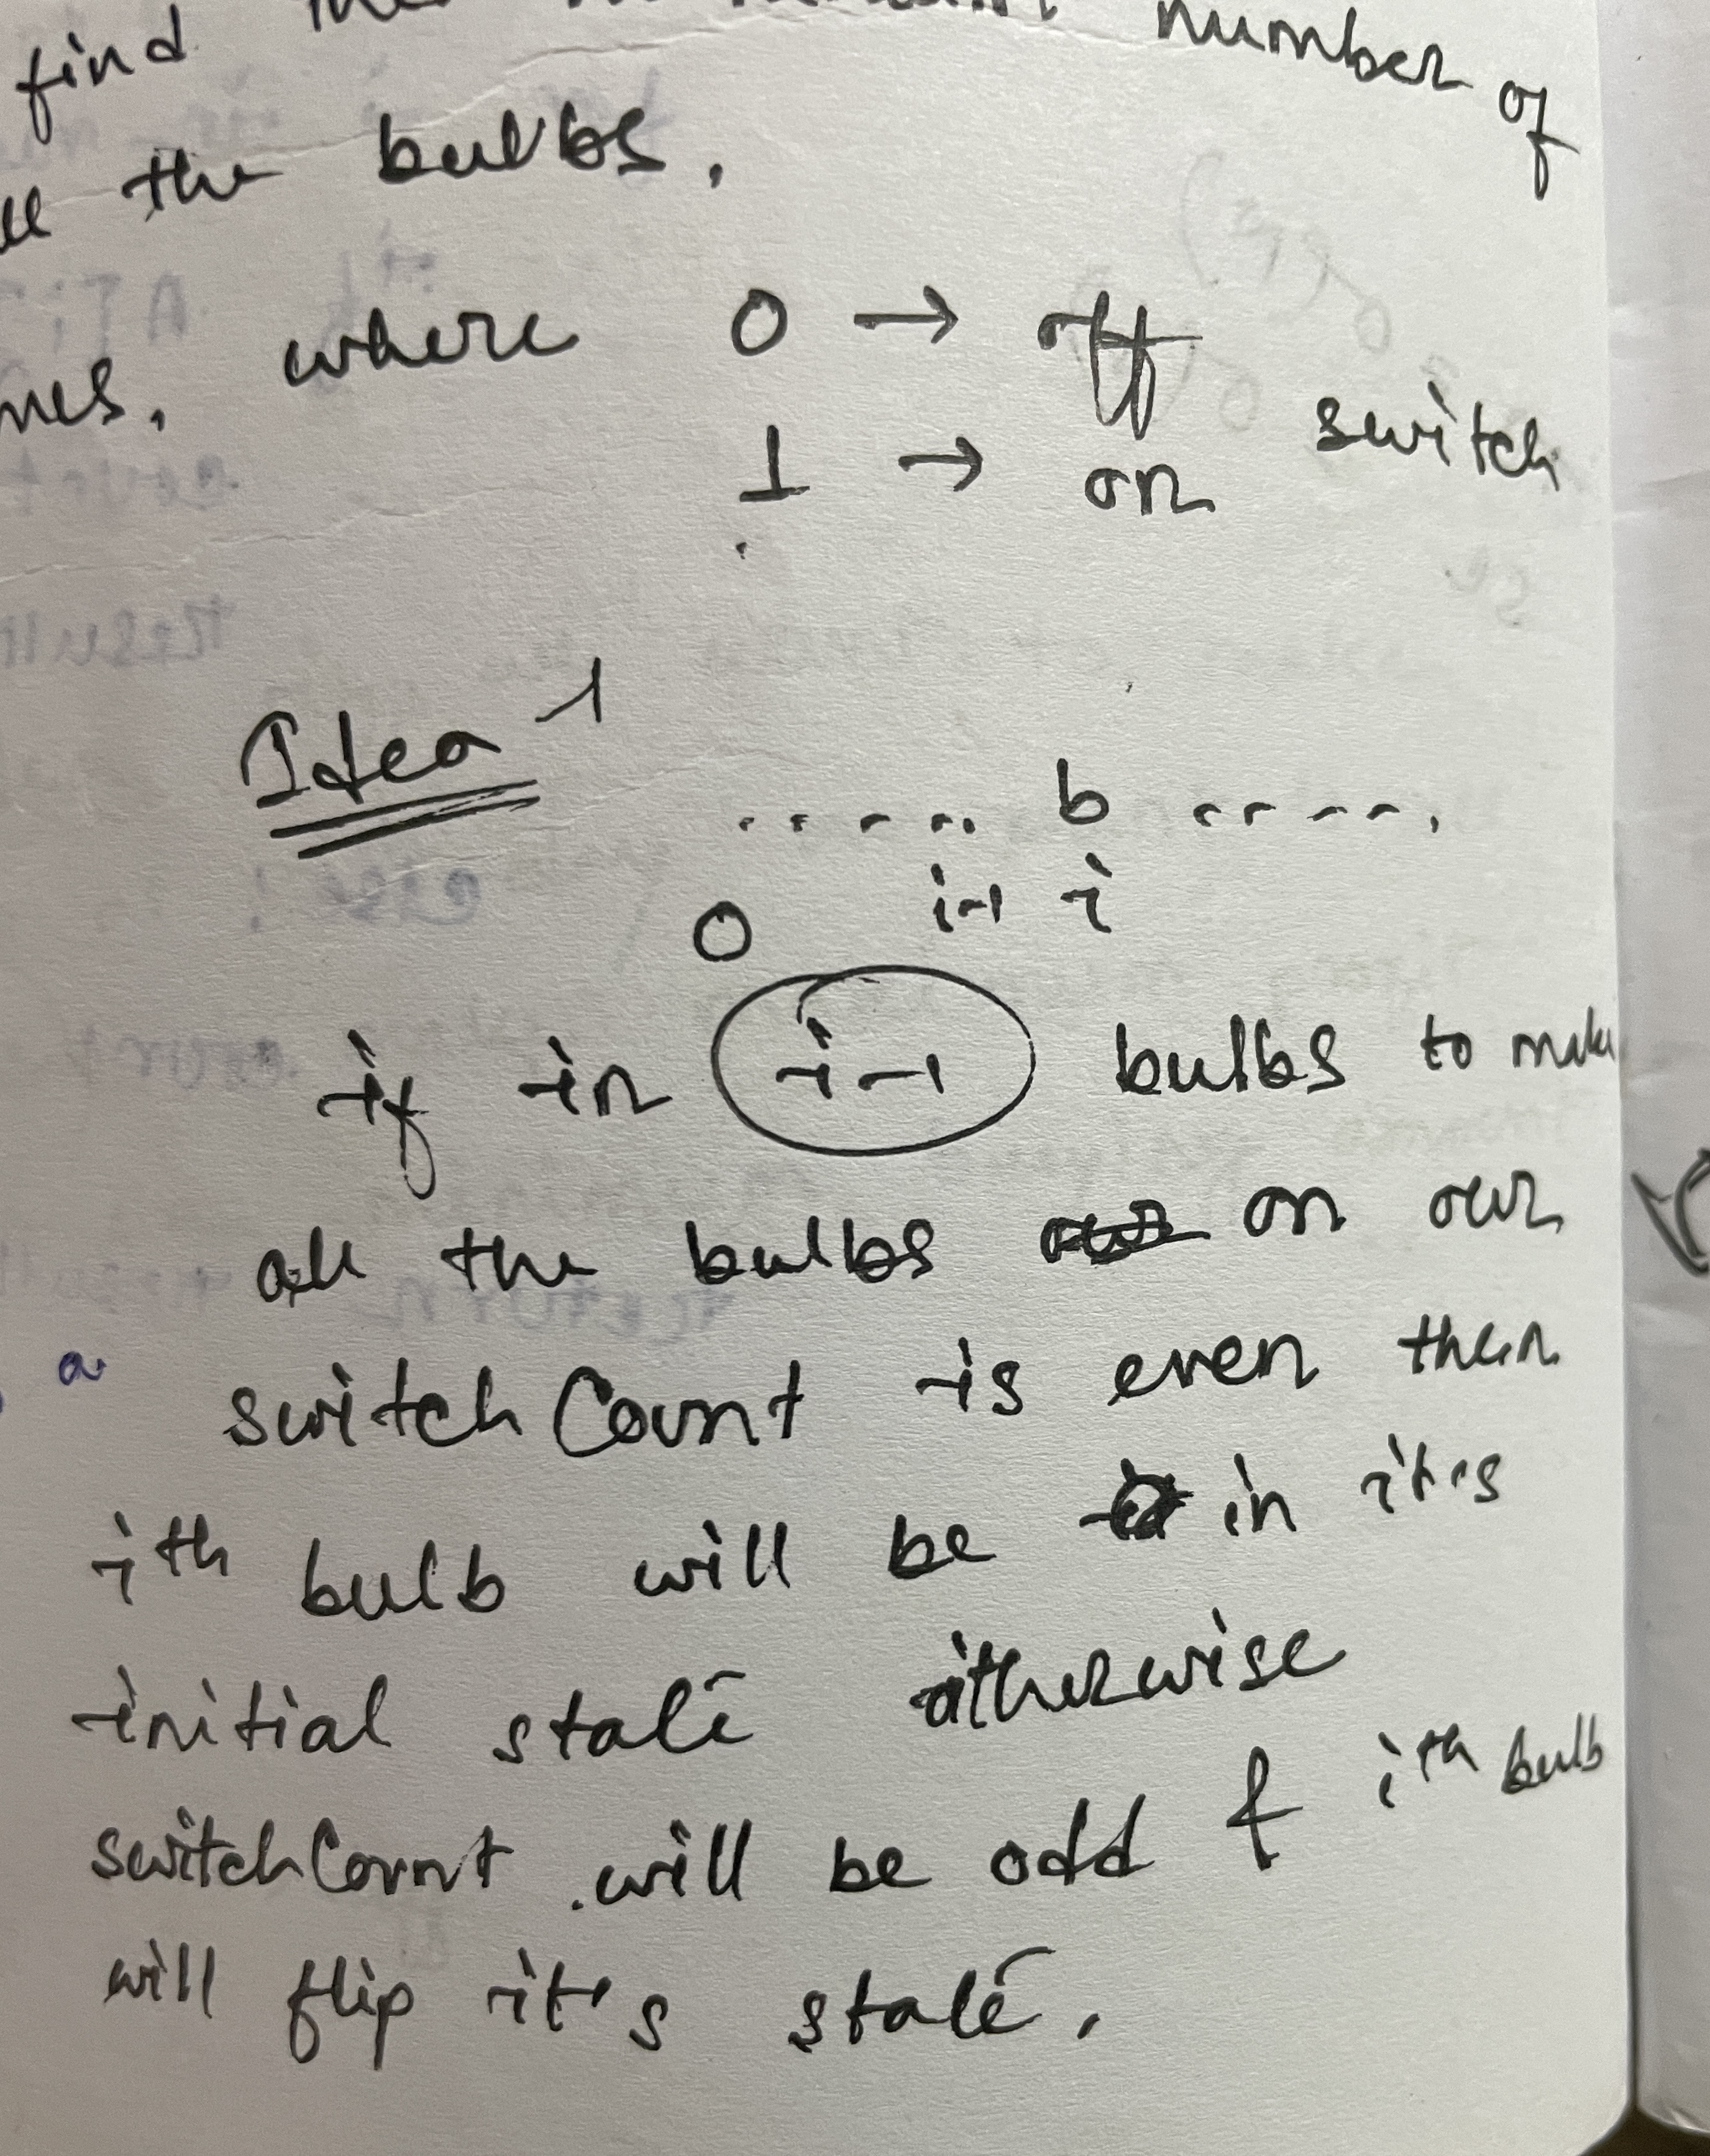 find number of
the bulbs.
where 0 → off
1 → on switch
Idea 1
..... b .....
0 i-1 i
if in i-1 bulbs to make
all the bulbs on our
a switch Count is even then
ith bulb will be in it's
initial state otherwise
switchCount will be odd & ith bulb
will flip it's state.